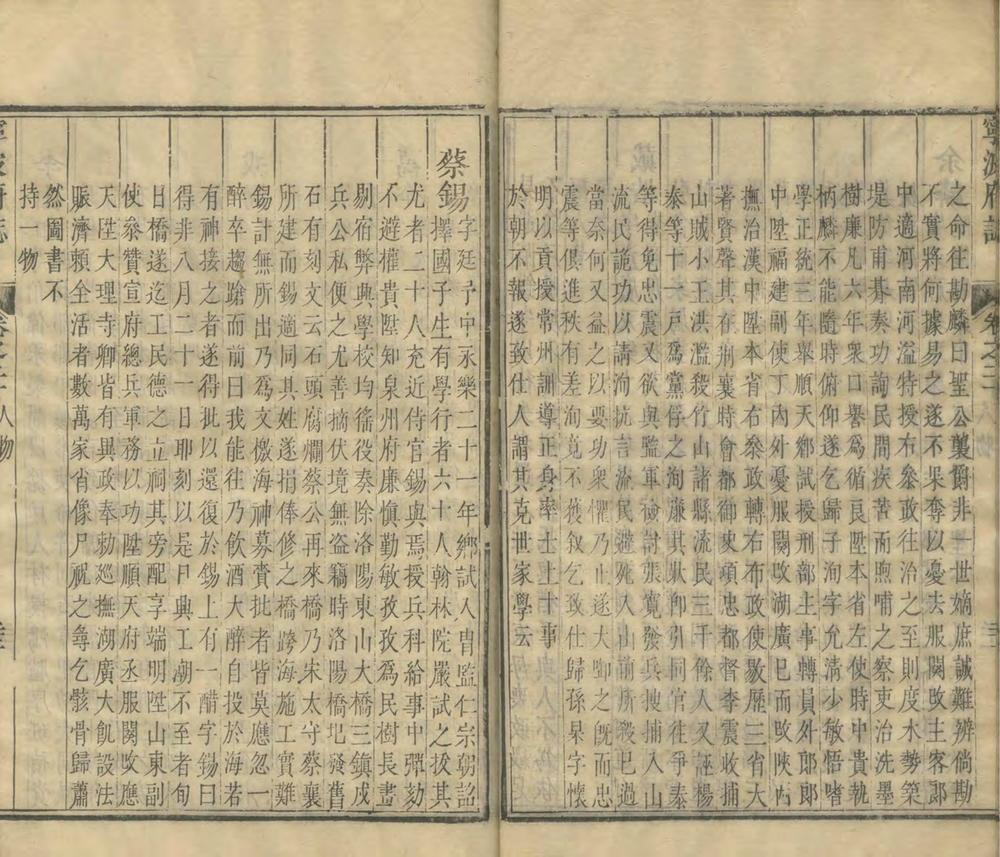 寧波府誌
卷之二
之命往勘麟曰聖公襲爵非一世嫡庶誠難辨倘勘
不實將何據易之遂不果奪以憂去服闋改主客郎
中適河南河溢特授布參政往治之至則度木勢築
堤防甫朞奏功詢民間疾苦而煦哺之察吏治洗墨
樹廉凡六年衆口譽爲循良陞本省左使時中貴執
柄麟不能隨時俯仰遂乞歸子洵字允清少敏悟嗜
學正統三年舉順天鄉試授刑部主事轉員外郎郎
中陞福建副使丁內外憂服闋改湖廣已而改陝西
撫治漢中陞本省右參政轉右布政使敭歷三省大
著賢聲其在荆襄時會都御史項忠都督李震收捕
山賊小王洪濫殺竹山諸縣流民三千餘人又誣楊
泰等十一戶爲黨俘之洵廉其狀仰引同官往爭泰
等得免忠震又欲與監軍檢討張寬發兵搜捕入山
流民詭功以請洵抗言流民避死入山前所殺已過
當奈何又益之以要功衆懼乃止遂大啣之旣而忠
震等俱進秩有差洵竟不獲叙乞致仕歸孫杲字懷
明以貢授常州訓導正身率士上十事
於朝不報遂致仕人謂其克世家學云
蔡錫字廷予中永樂二十一年鄉試入冑監仁宗詔
擇國子生有學行者六十人翰林院嚴試之拔其
尤者二十八人充近侍官錫與焉授兵科給事中彈劾
不避權貴陞知泉州府廉愼勤敏孜孜爲民樹長畫
剔宿弊興學校均徭役奏除洛陽東山大橋三鎭戍
兵公私便之尤善摘伏境無盜竊時洛陽橋圮發舊
石有刻文云石頭腐爛蔡公再來橋乃宋太守蔡襄
所建而錫適同其姓遂捐俸修之橋跨海施工實難
錫計無所出乃爲文檄海神募賫批者皆莫應忽一
醉卒趨蹌而前曰我能往乃飲酒大醉自投於海若
有神接之者遂得批以還復於錫上有一醋字錫曰
得非八月二十一日耶刻以是日興工潮不至者旬
日橋遂迄工民德之立祠其旁配享端明陞山東副
使叅贊宣府總兵軍務以功陞順天府丞服闋改應
天陞大理寺卿皆有異政奉勅巡撫湖廣大飢設法
賑濟賴全活者數萬家肖像尸祝之每乞骸骨歸蕭
然圖書不
持一物
寧波府誌
人物